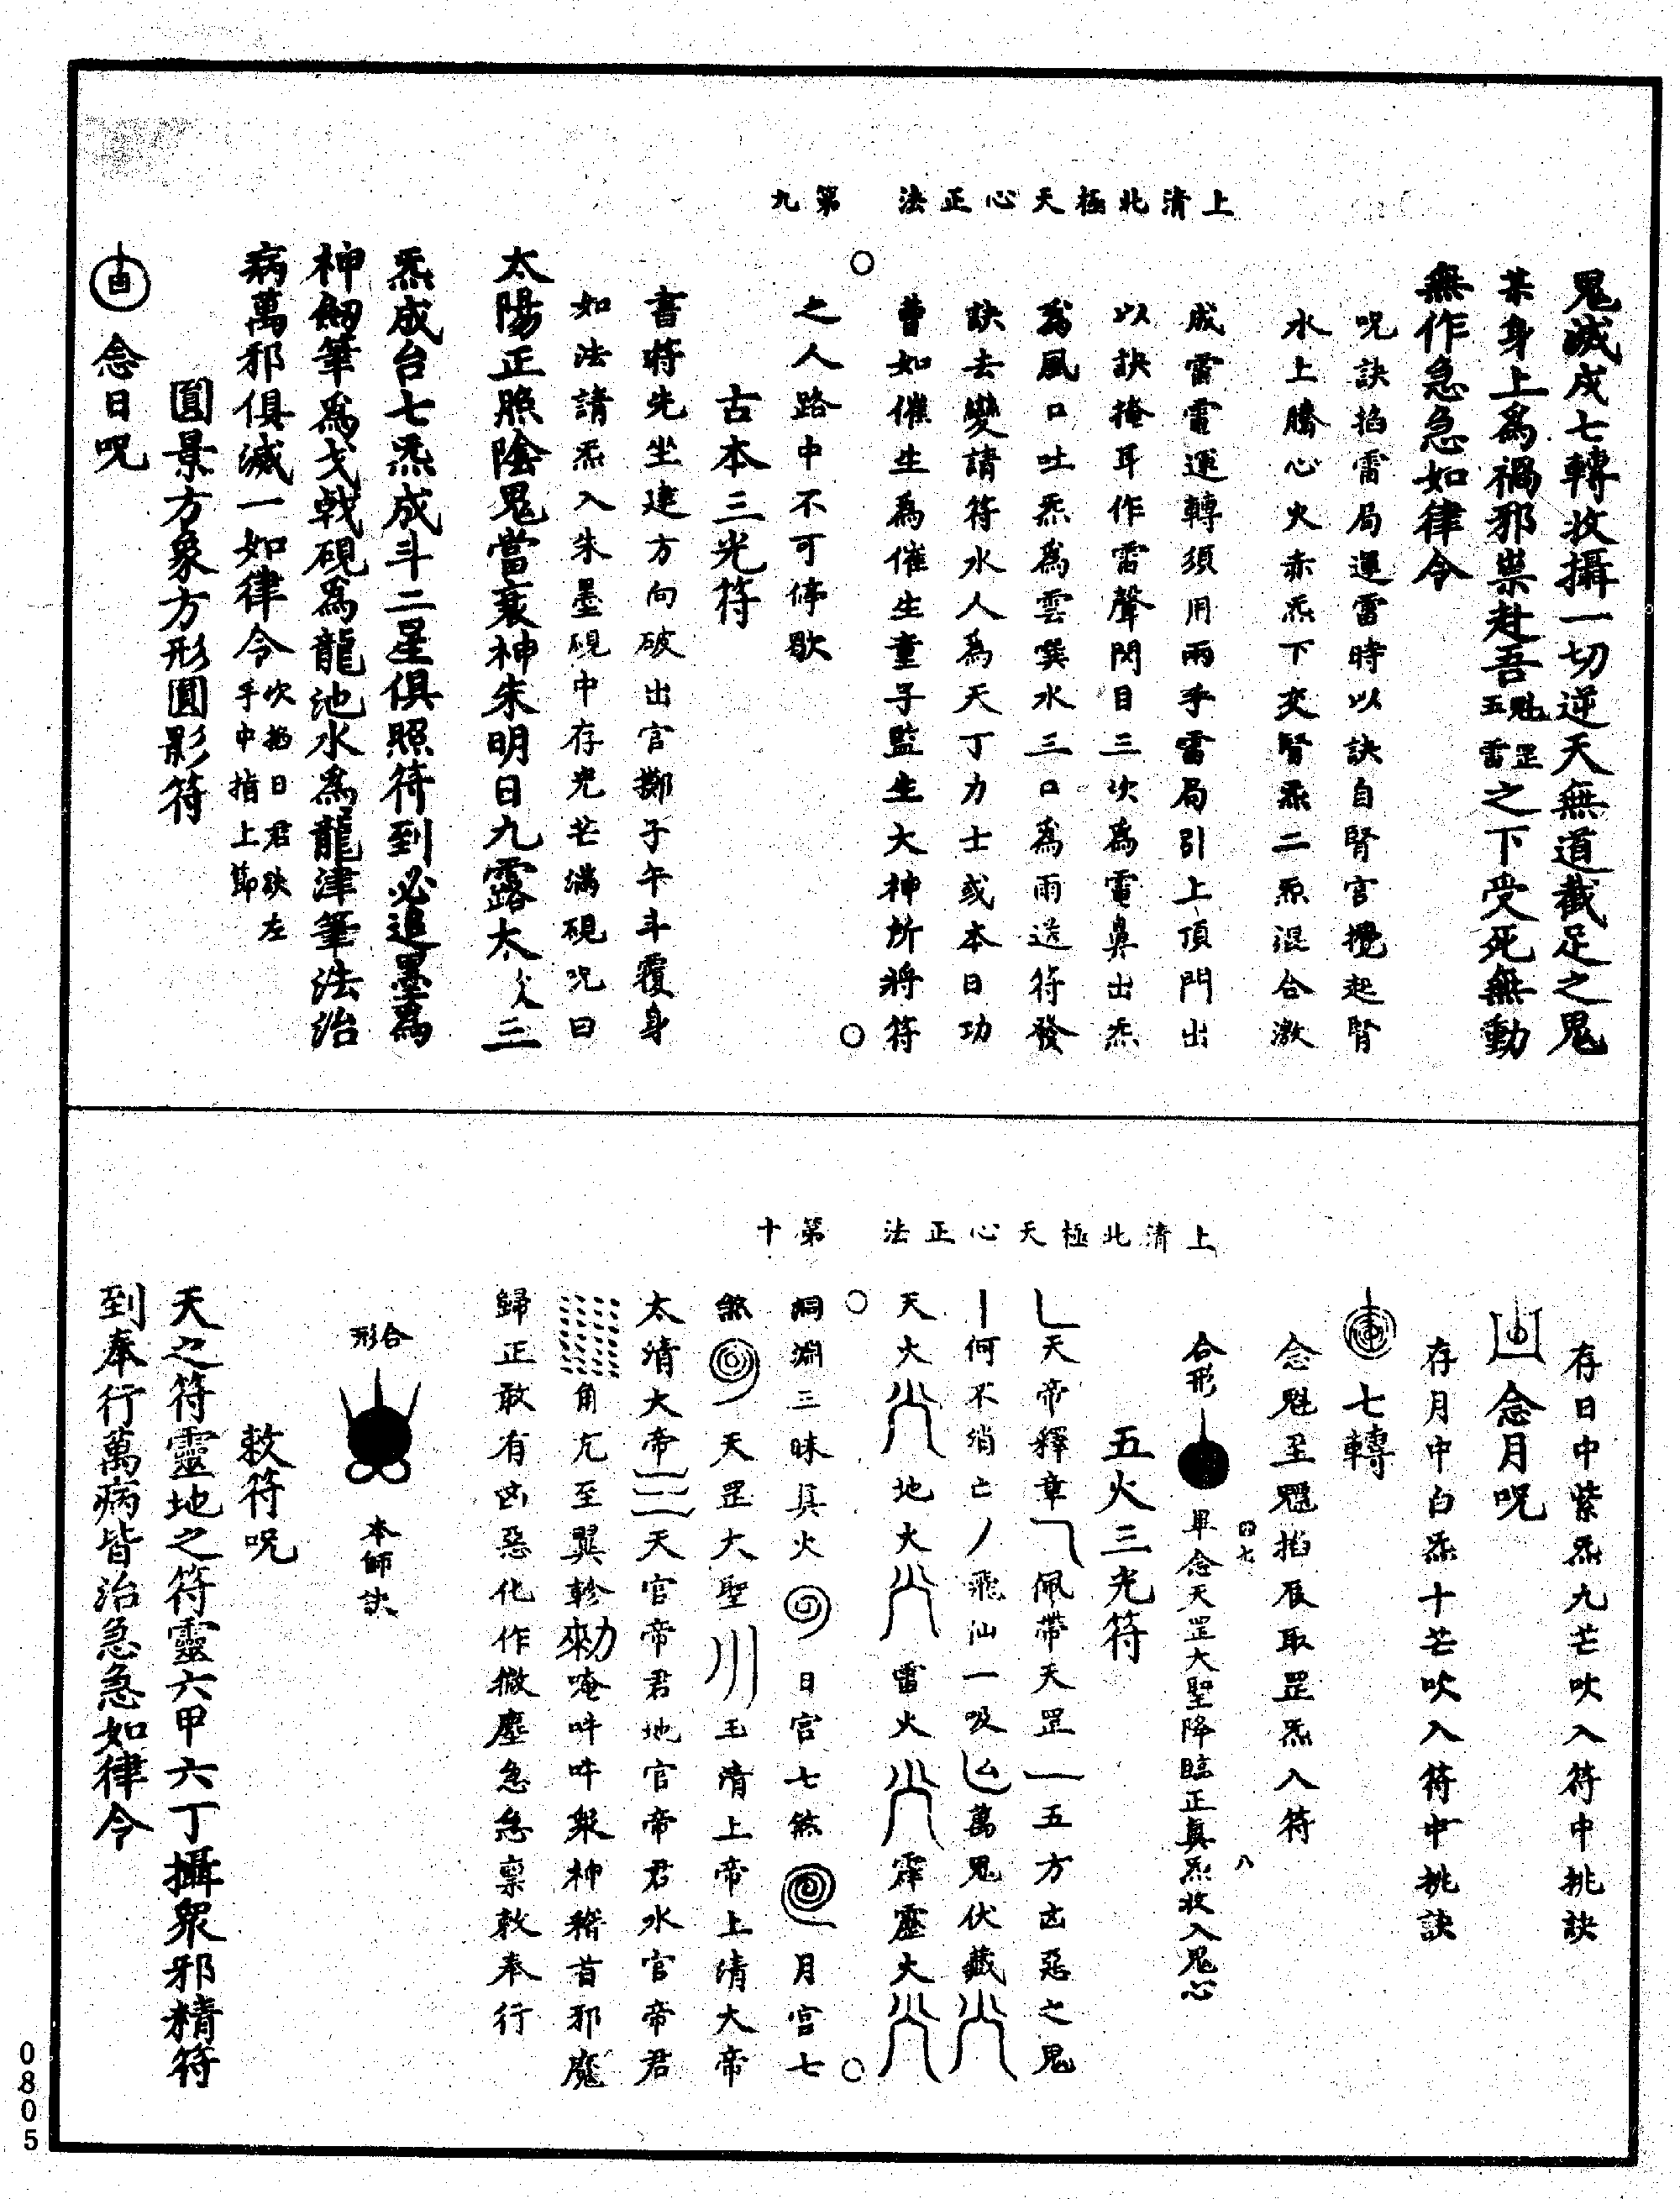 上清北極天心正法　第九
鬼滅戌七轉收攝一切逆天無道截足之鬼
某身上為禍邪祟赴吾魁罡五雷之下受死無動
無作急急如律令
呪訣掐雷局運雷時以訣自腎宮攪起腎
水上騰心火赤炁下交腎炁二炁混合激
成雷電運轉須用兩手雷局引上頂門出
以訣掩耳作雷聲閃目三次為電鼻出炁
為風口吐炁為雲噀水三口為雨送符發
訣去變請符水人為天丁力士或本日功
曹如催生為催生童子監生大神所將符
之人路中不可停歇
古本三光符
書時先坐建方向破出官擲子午斗覆身
如法請炁入朱墨硯中存光芒滿硯呪曰
太陽正照陰鬼當衰神朱明日九露太火三
炁成台七炁成斗二星俱照符到必追墨為
神劒筆為戈戟硯為龍池水為龍津筆法治
病萬邪俱滅一如律令吹掐日君訣左手中指上節
圓景方象方形圓影符
念日呪
上清北極天心正法　第十
存日中紫炁九芒吹入符中挑訣
念月呪
存月中白炁十芒吹入符中挑訣
七轉
念魁至魒掐辰取罡炁入符
合形　畢念天罡大聖降臨正真炁收入鬼心
四七　八
五火三光符
天帝釋章　佩帶天罡　五方凶惡之鬼
何不消亡　飛仙一吸　萬鬼伏藏
天火　地火　雷火　霹靂火
洞淵三昧真火　日宮七煞　月宮七
煞　天罡大聖　玉清上帝上清大帝
太清大帝　天官帝君地官帝君水官帝君
角亢至翼軫勑唵吽吽眾神稽首邪魔
歸正敢有凶惡化作微塵急急稟敕奉行
合形　本師訣
敕符呪
天之符靈地之符靈六甲六丁攝眾邪精符
到奉行萬病皆治急急如律令
0805